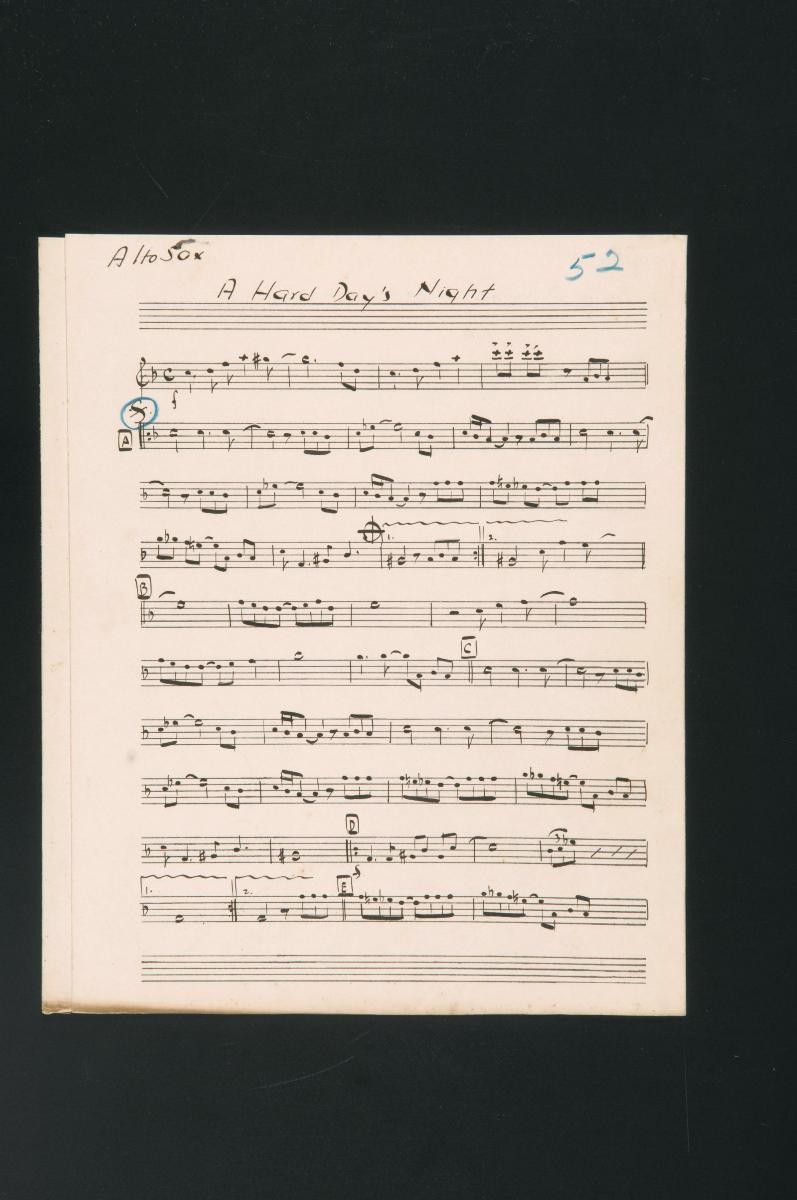 Alto Sax
52
A Hard Day's Night
f
A
1.
2.
B
C
D
1.
2.
E